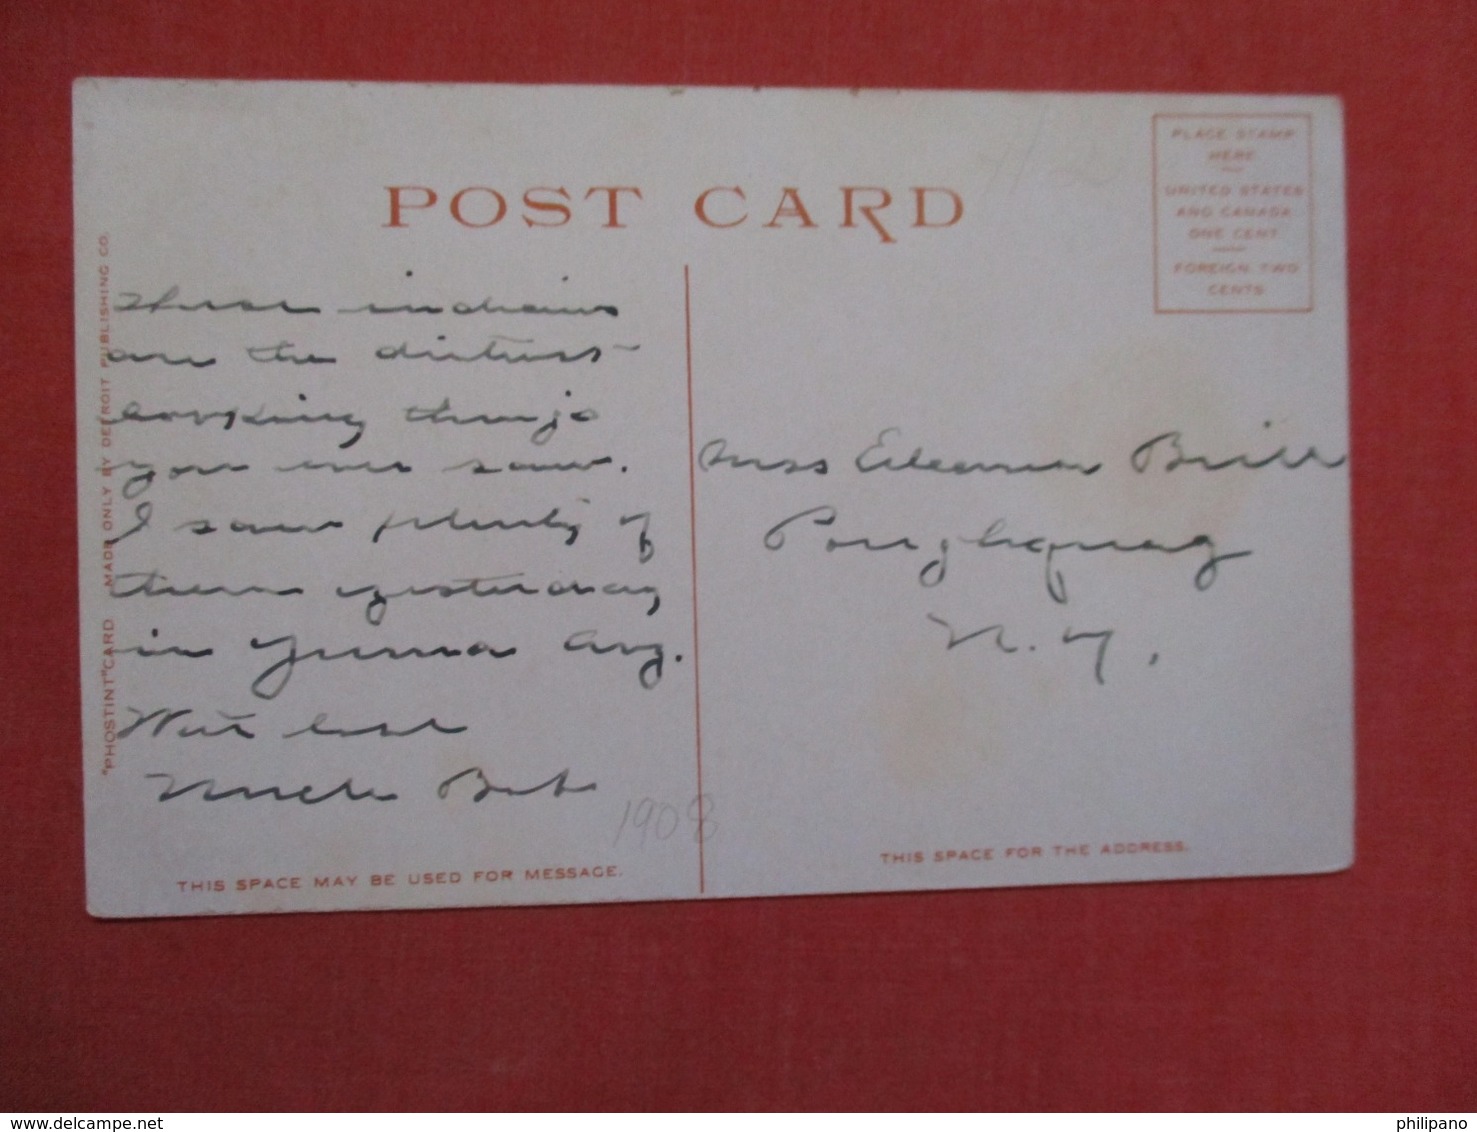 POST CARD
PLACE STAMP
HERE
UNITED STATES
AND CANADA
ONE CENT
FOREIGN TWO
CENTS
"PHOSTINT" CARD MADE ONLY BY DETROIT PUBLISHING CO.
These indians
are the
looking things
you ever saw.
I saw plenty of
them yesterday
in Yuma Arz.
With love
Uncle Bob
1908
THIS SPACE MAY BE USED FOR MESSAGE.
Miss Eleanor Brill
Poughquag
N.Y.
THIS SPACE FOR THE ADDRESS.
philipano
delcampe.net